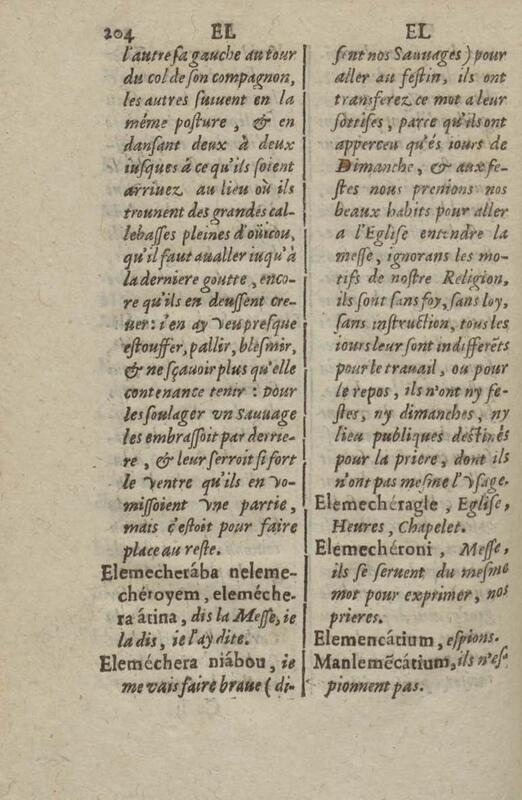 204 EL EL
l'autre sa gauche autour
du col de son compagnon,
les autres suiuent en la
méme posture, & en
dansant deux à deux
iusques à ce qu'ils soient
arriuez au lieu où ils
trouuent des grandes cal-
lebasses pleines d'oüicou,
qu'il faut aualler iuqu'à
la derniere goutte, enco-
re qu'ils en deussent cre-
uer: i'en ay veu presque
estouffer, pallir, blesmir,
& ne sçauoir plus qu'elle
contenance tenir: pour
les soulager vn Sauuage
les embrassoit par derrie-
re, & leur serroit si fort
le ventre qu'ils en vo-
missoient vne partie,
mais c'estoit pour faire
place au reste.
Elemecherába neleme-
chéroyem, eleméche-
ra átina, dis la Messe, ie
la dis, ie l'ay dite.
Eleméchera niábou, ie
me vais faire braue (di-
sent nos Sauuages) pour
aller au festin, ils ont
transferez ce mot a leur
sottises, parce qu'ils ont
apperceu qu'és iours de
Dimanche, & aux fe-
stes nous prenions nos
beaux habits pour aller
a l'Eglise entendre la
messe, ignorans les mo-
tifs de nostre Religion,
ils sont sans foy, sans loy,
sans instruction, tous les
iours leur sont indifferẽts
pour le trauail, ou pour
le repos, ils n'ont ny fe-
stes, ny dimanches, ny
lieu publiques destinés
pour la priere, dont ils
n'ont pas mesme l'vsage.
Elemechéragle, Eglise,
Heures, Chapelet.
Elemechéroni, Messe,
ils se seruent du mesme
mot pour exprimer, nos
prieres.
Elemencátium, espions.
Manlemẽcátium, ils n'es
pionnent pas.